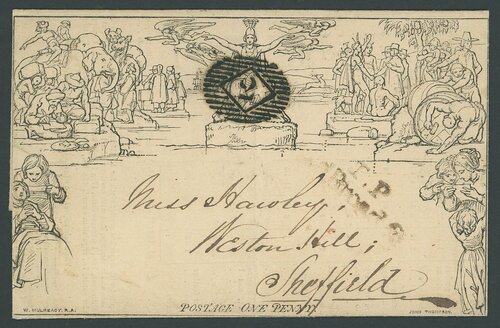 2
Miss Hawley,
Weston Hill;
Sheffield.
POSTAGE ONE PENNY.
W. MULREADY, R.A.
JOHN THOMPSON.